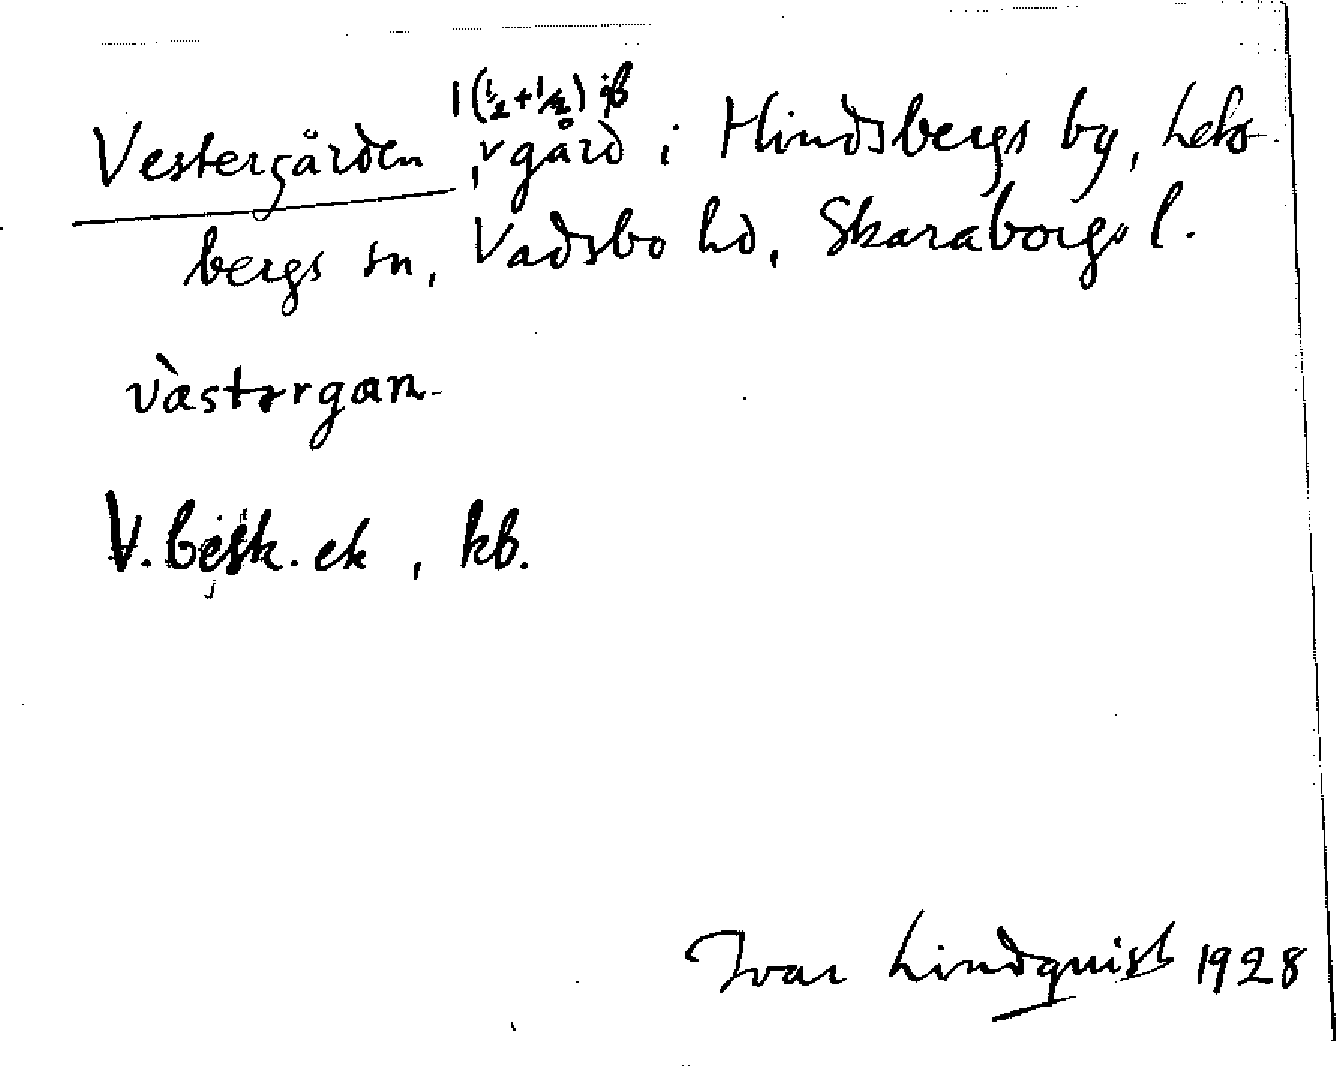 1 (1/2 + 1/2)
Vestergården, gård i Hindsbergs by, Leks-
bergs sn, Vadsbo hd, Skaraborgs l.
vàstərgan
V. besk. ek, kb.
Ivar Lindquist 1928